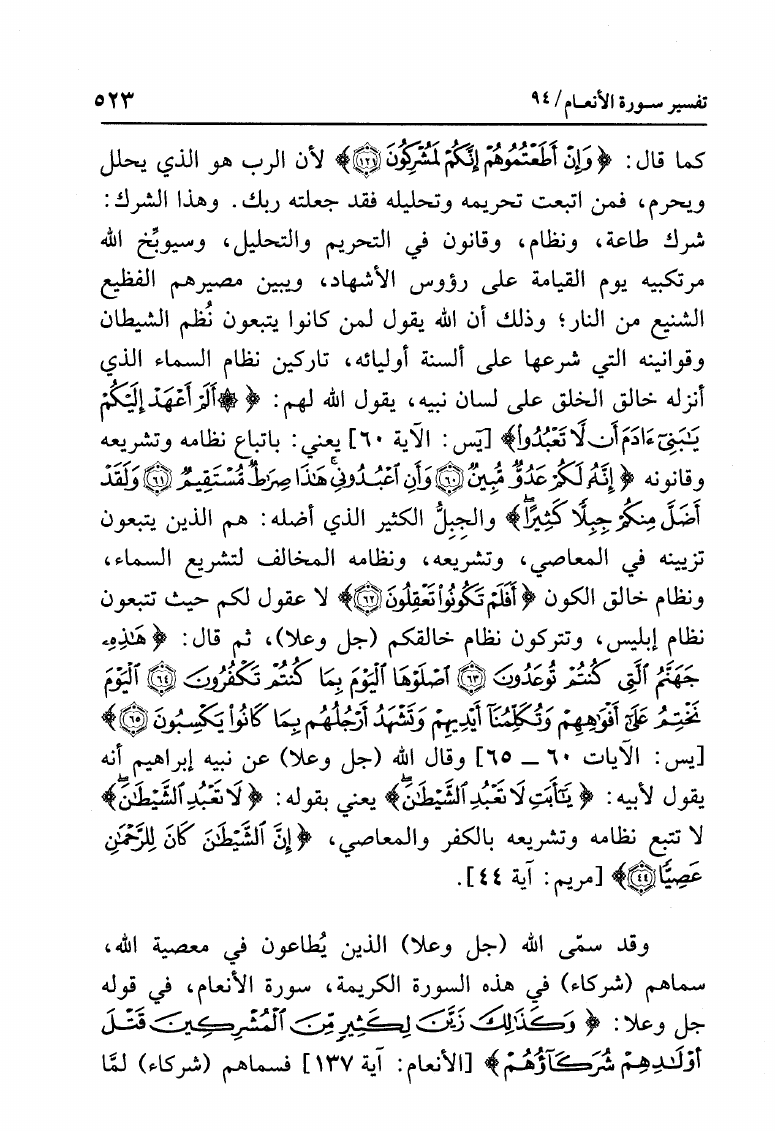 تفسير سـورة الأنعـام/ ٩٤ ٥٢٣
كما قال: ﴿ وَإِنْ أَطَعْتُمُوهُمْ إِنَّكُمْ لَمُشْرِكُونَ ١٢١﴾ لأن الرب هو الذي يحلل
ويحرم، فمن اتبعت تحريمه وتحليله فقد جعلته ربك. وهذا الشرك:
شرك طاعة، ونظام، وقانون في التحريم والتحليل، وسيوبِّخ الله
مرتكبيه يوم القيامة على رؤوس الأشهاد، ويبين مصيرهم الفظيع
الشنيع من النار؛ وذلك أن الله يقول لمن كانوا يتبعون نُظم الشيطان
وقوانينه التي شرعها على ألسنة أوليائه، تاركين نظام السماء الذي
أنزله خالق الخلق على لسان نبيه، يقول الله لهم: ﴿ ۞ أَلَمْ أَعْهَدْ إِلَيْكُمْ
يَٰبَنِيٓ ءَادَمَ أَن لَّا تَعْبُدُوا﴾ [يس: الآية ٦٠] يعني: باتباع نظامه وتشريعه
وقانونه ﴿ إِنَّهُۥ لَكُمْ عَدُوٌّ مُّبِينٌ ٦٠ وَأَنِ ٱعْبُدُونِي ۚ هَٰذَا صِرَٰطٌ مُّسْتَقِيمٌ ٦١ وَلَقَدْ
أَضَلَّ مِنكُمْ جِبِلًّا كَثِيرًا ۖ﴾ والجِبِلُّ الكثير الذي أضله: هم الذين يتبعون
تزيينه في المعاصي، وتشريعه، ونظامه المخالف لتشريع السماء،
ونظام خالق الكون ﴿ أَفَلَمْ تَكُونُوا۟ تَعْقِلُونَ ٦٢﴾ لا عقول لكم حيث تتبعون
نظام إبليس، وتتركون نظام خالقكم (جل وعلا)، ثم قال: ﴿ هَٰذِهِۦ
جَهَنَّمُ ٱلَّتِي كُنتُمْ تُوعَدُونَ ٦٣ ٱصْلَوْهَا ٱلْيَوْمَ بِمَا كُنتُمْ تَكْفُرُونَ ٦٤ ٱلْيَوْمَ
نَخْتِمُ عَلَىٰٓ أَفْوَٰهِهِمْ وَتُكَلِّمُنَآ أَيْدِيهِمْ وَتَشْهَدُ أَرْجُلُهُم بِمَا كَانُوا۟ يَكْسِبُونَ ٦٥ ﴾
[يس: الآيات ٦٠ ــ ٦٥] وقال الله (جل وعلا) عن نبيه إبراهيم أنه
يقول لأبيه: ﴿ يَٰٓأَبَتِ لَا تَعْبُدِ ٱلشَّيْطَٰنَ ۖ﴾ يعني بقوله: ﴿ لَا تَعْبُدِ ٱلشَّيْطَٰنَ ۖ﴾
لا تتبع نظامه وتشريعه بالكفر والمعاصي، ﴿ إِنَّ ٱلشَّيْطَٰنَ كَانَ لِلرَّحْمَٰنِ
عَصِيًّا ٤٤﴾ [مريم: آية ٤٤].
وقد سمّى الله (جل وعلا) الذين يُطاعون في معصية الله،
سماهم (شركاء) في هذه السورة الكريمة، سورة الأنعام، في قوله
جل وعلا: ﴿ وَكَذَٰلِكَ زَيَّنَ لِكَثِيرٍ مِّنَ ٱلْمُشْرِكِينَ قَتْلَ
أَوْلَٰدِهِمْ شُرَكَآؤُهُمْ ﴾ [الأنعام: آية ١٣٧] فسماهم (شركاء) لمَّا